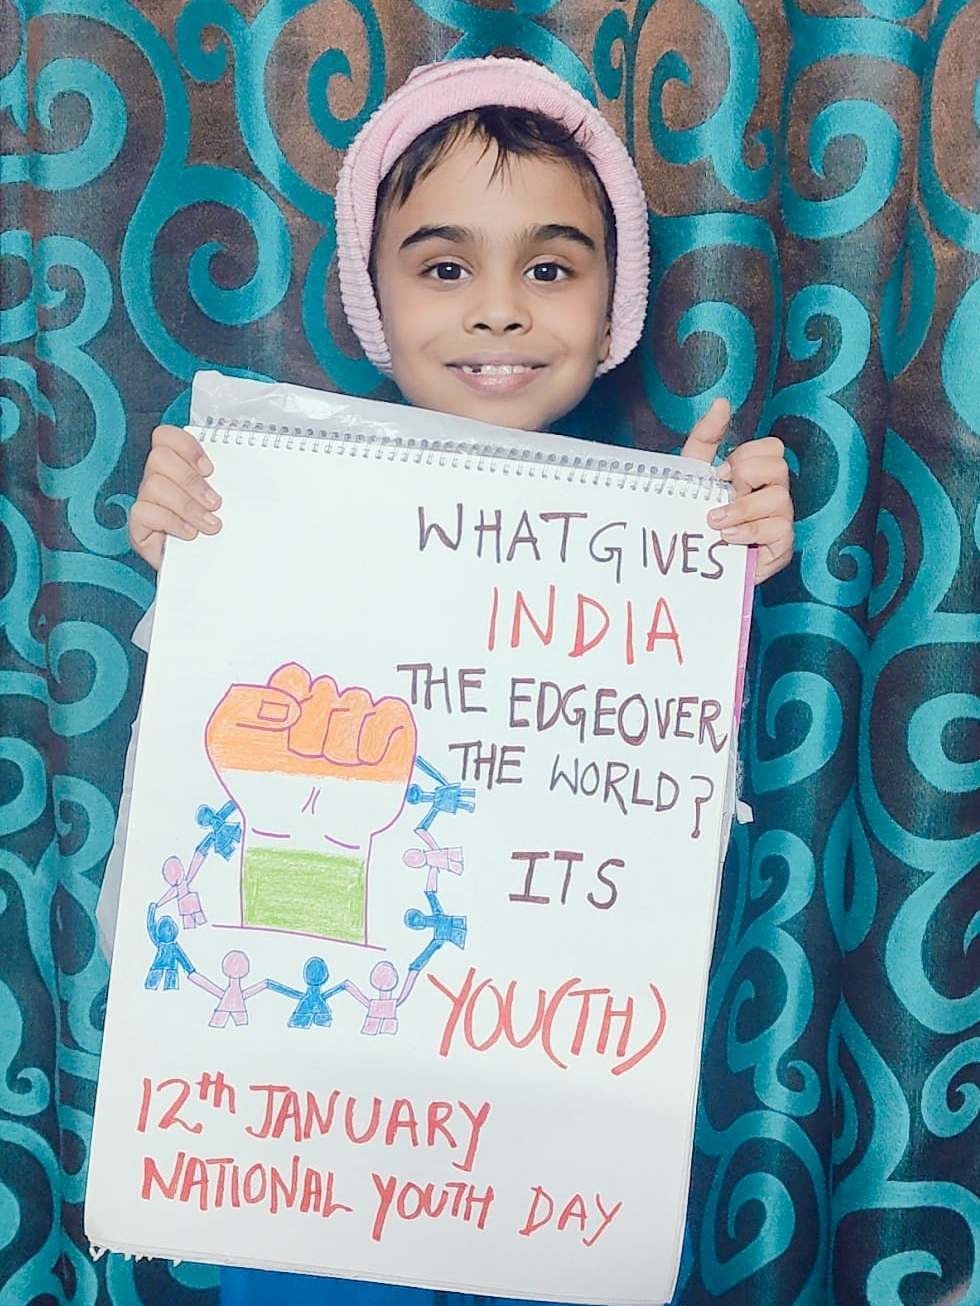 WHAT GIVES
INDIA
THE EDGEOVER
THE WORLD?
ITS
YOU(TH)
12th JANUARY
NATIONAL YOUTH DAY